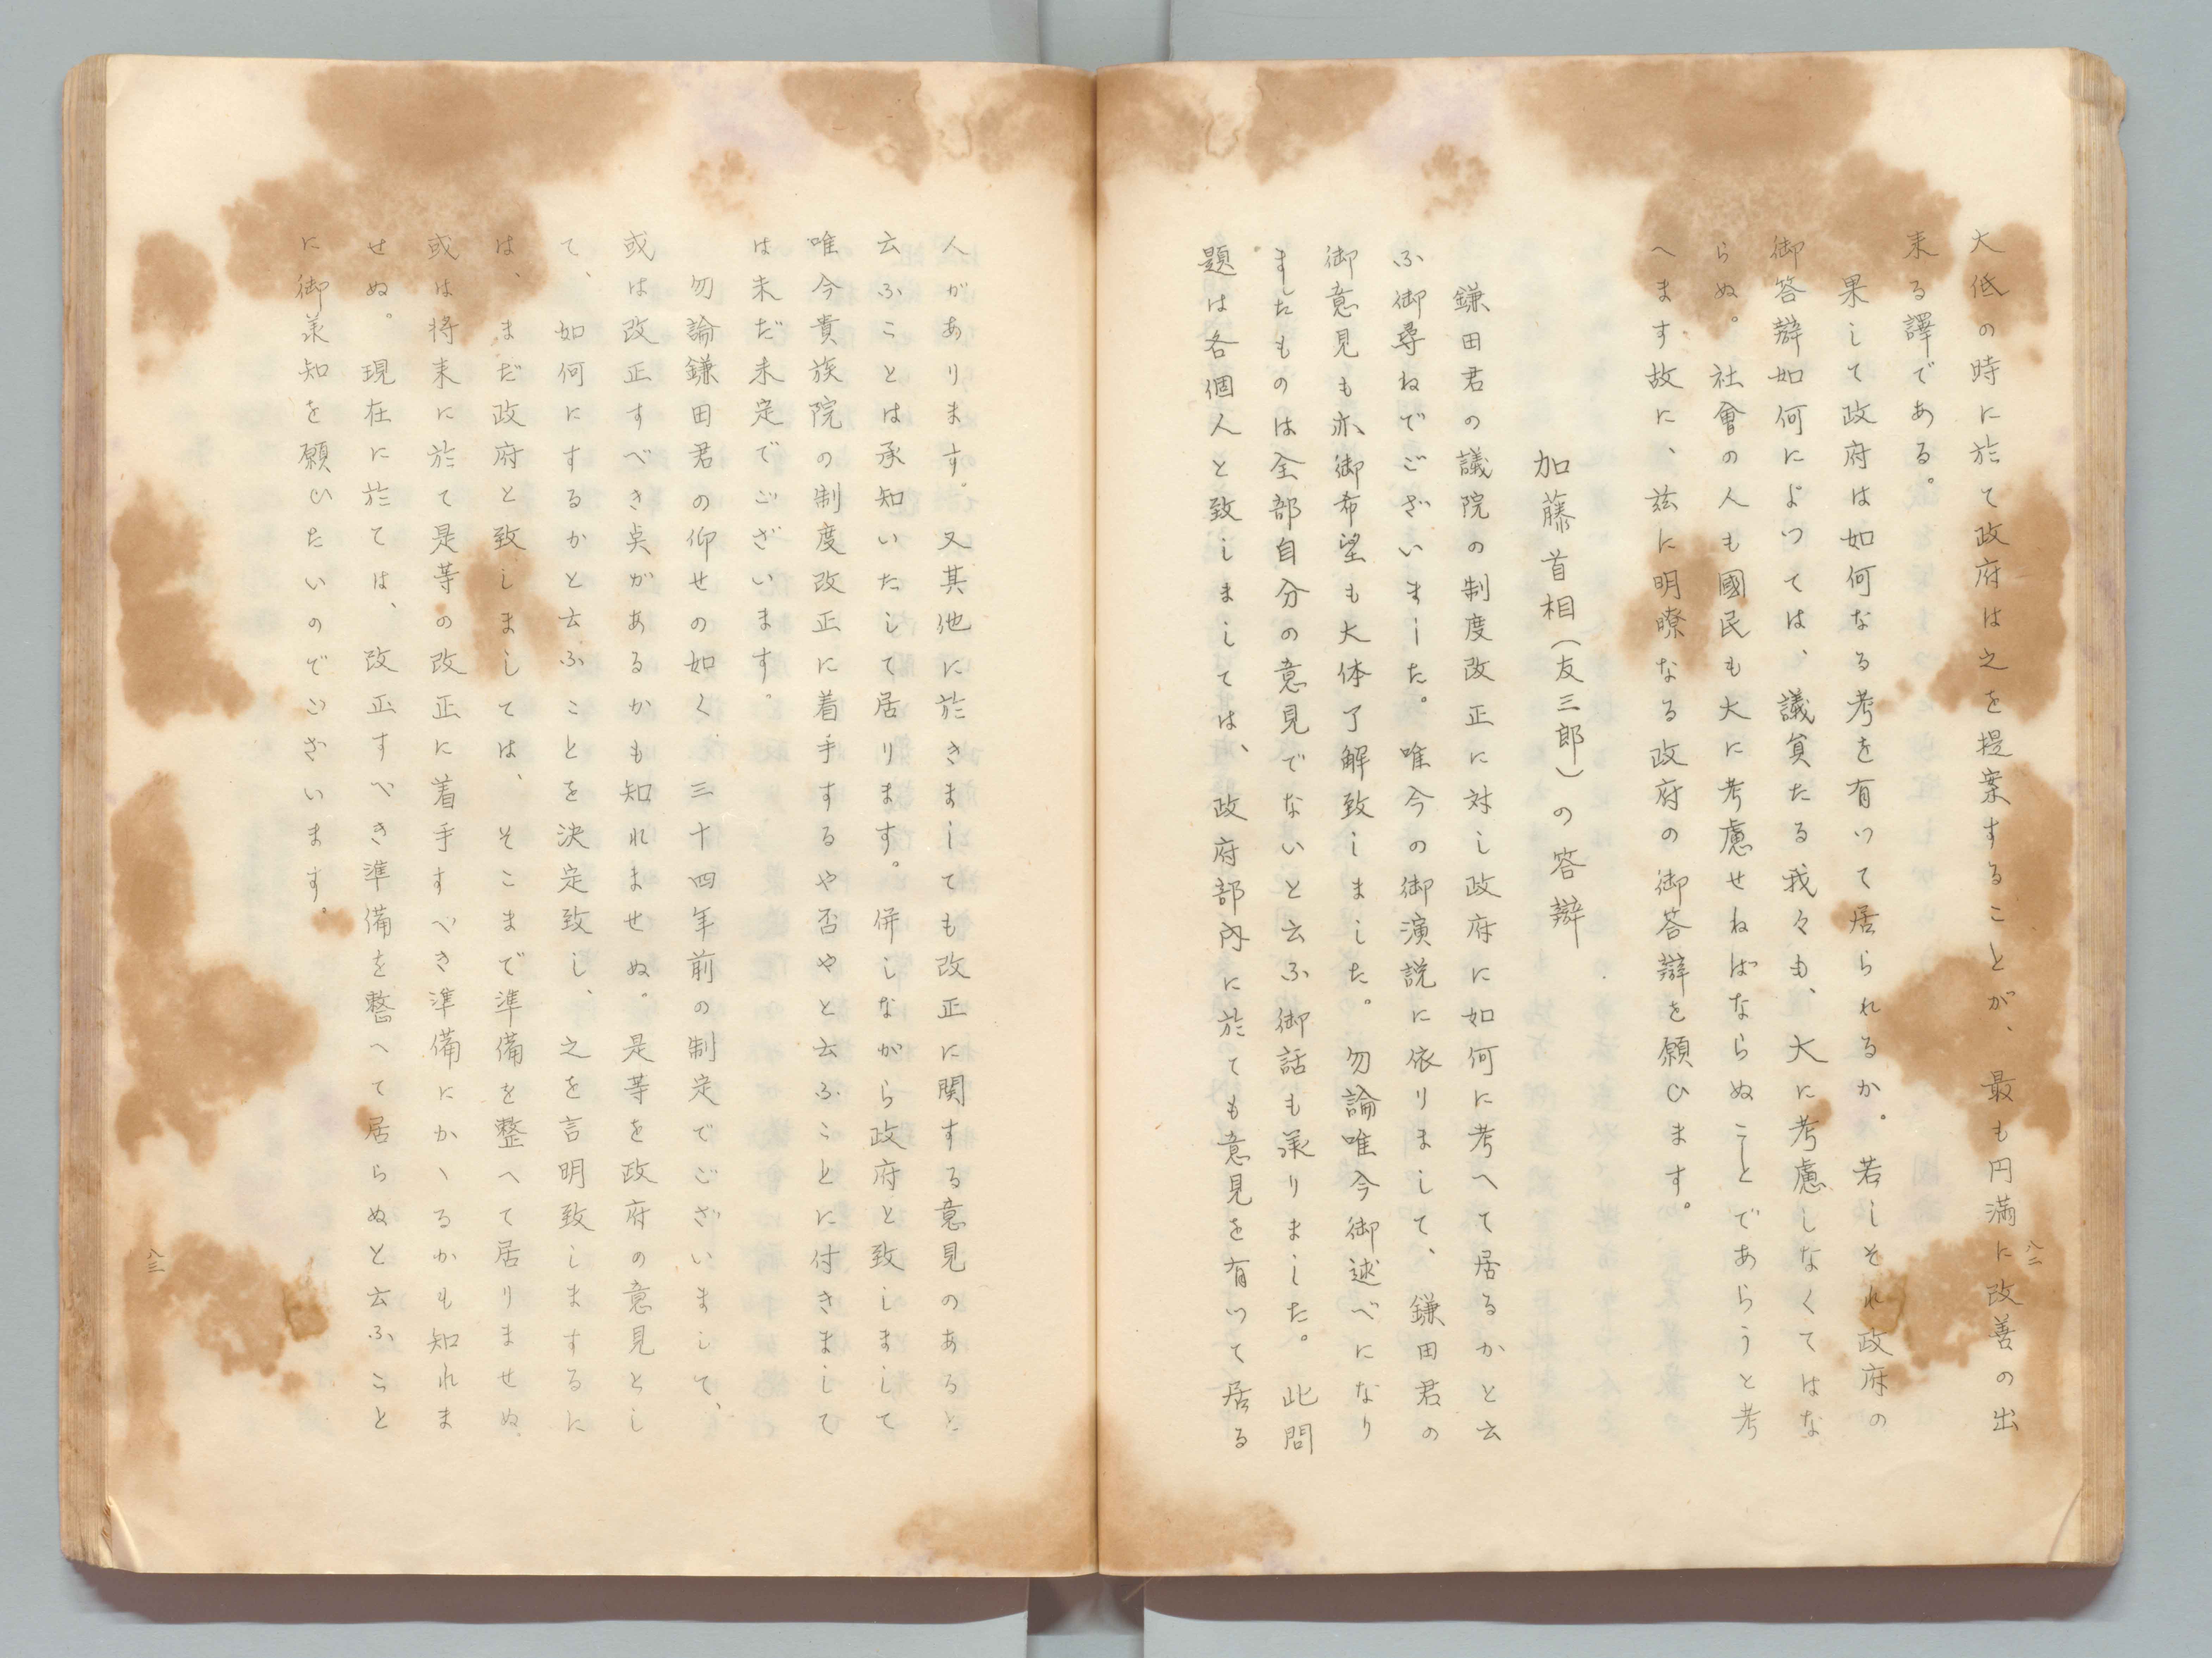 大低の時に於て政府は之を提案することが、最も円満に改善の出
来る譯である。
果して政府は如何なる考を有いて居られるか。若しそれ政府の
御答辯如何によつては、議員たる我々も、大に考慮しなくてはな
らぬ。社會の人も國民も大に考慮せねばならぬことであらうと考
へます故に、茲に明瞭なる政府の御答辯を願ひます。
加藤首相(友三郎)の答辯
鎌田君の議院の制度改正に対し政府に如何に考へて居るかと云
ふ御尋ねでございました。唯今の御演説に依りまして、鎌田君の
御意見も亦御希望も大体了解致しました。勿論唯今御述べになり
ましたものは全部自分の意見でないと云ふ御話も承りました。此問
題は各個人と致しましては、政府部内に於ても意見を有いて居る
八二
人があります。又其他に於きましても改正に関する意見のあると
云ふことは承知いたして居ります。併しながら政府と致しまして
唯今貴族院の制度改正に着手するや否やと云ふことに付きまして
は未だ未定でございます。
勿論鎌田君の仰せの如く三十四年前の制定でございまして、
或は改正すべき点があるかも知れませぬ。是等を政府の意見とし
て、如何にするかと云ふことを決定致し、之を言明致しまするに
は、まだ政府と致しましては、そこまで準備を整へて居りませぬ
或は将来に於て是等の改正に着手すべき準備にかゝるかも知れま
せぬ。現在に於ては、改正すべき準備を整へて居らぬと云ふこと
に御承知を願ひたいのでございます。
八三